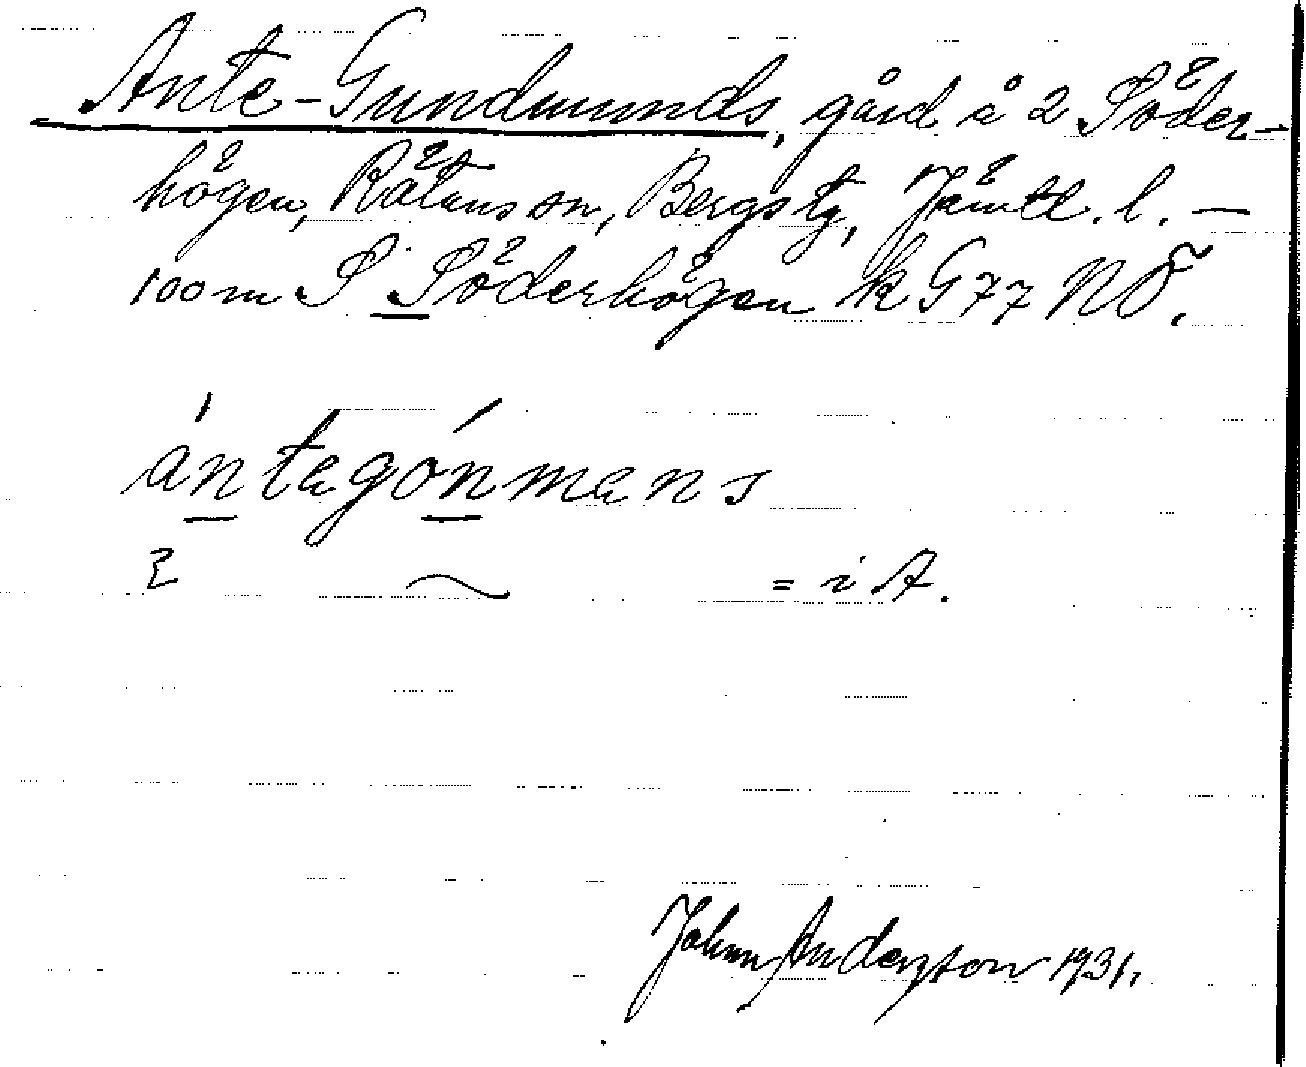 Ante-Gundmunds, gård å 2 Söder-
högen, Rätans sn, Bergs tg, Jämtl. l. —
100 m S S Söderhögen k G 77 NÖ.
ántegónmans
= i A.
John Anderzon 1931.